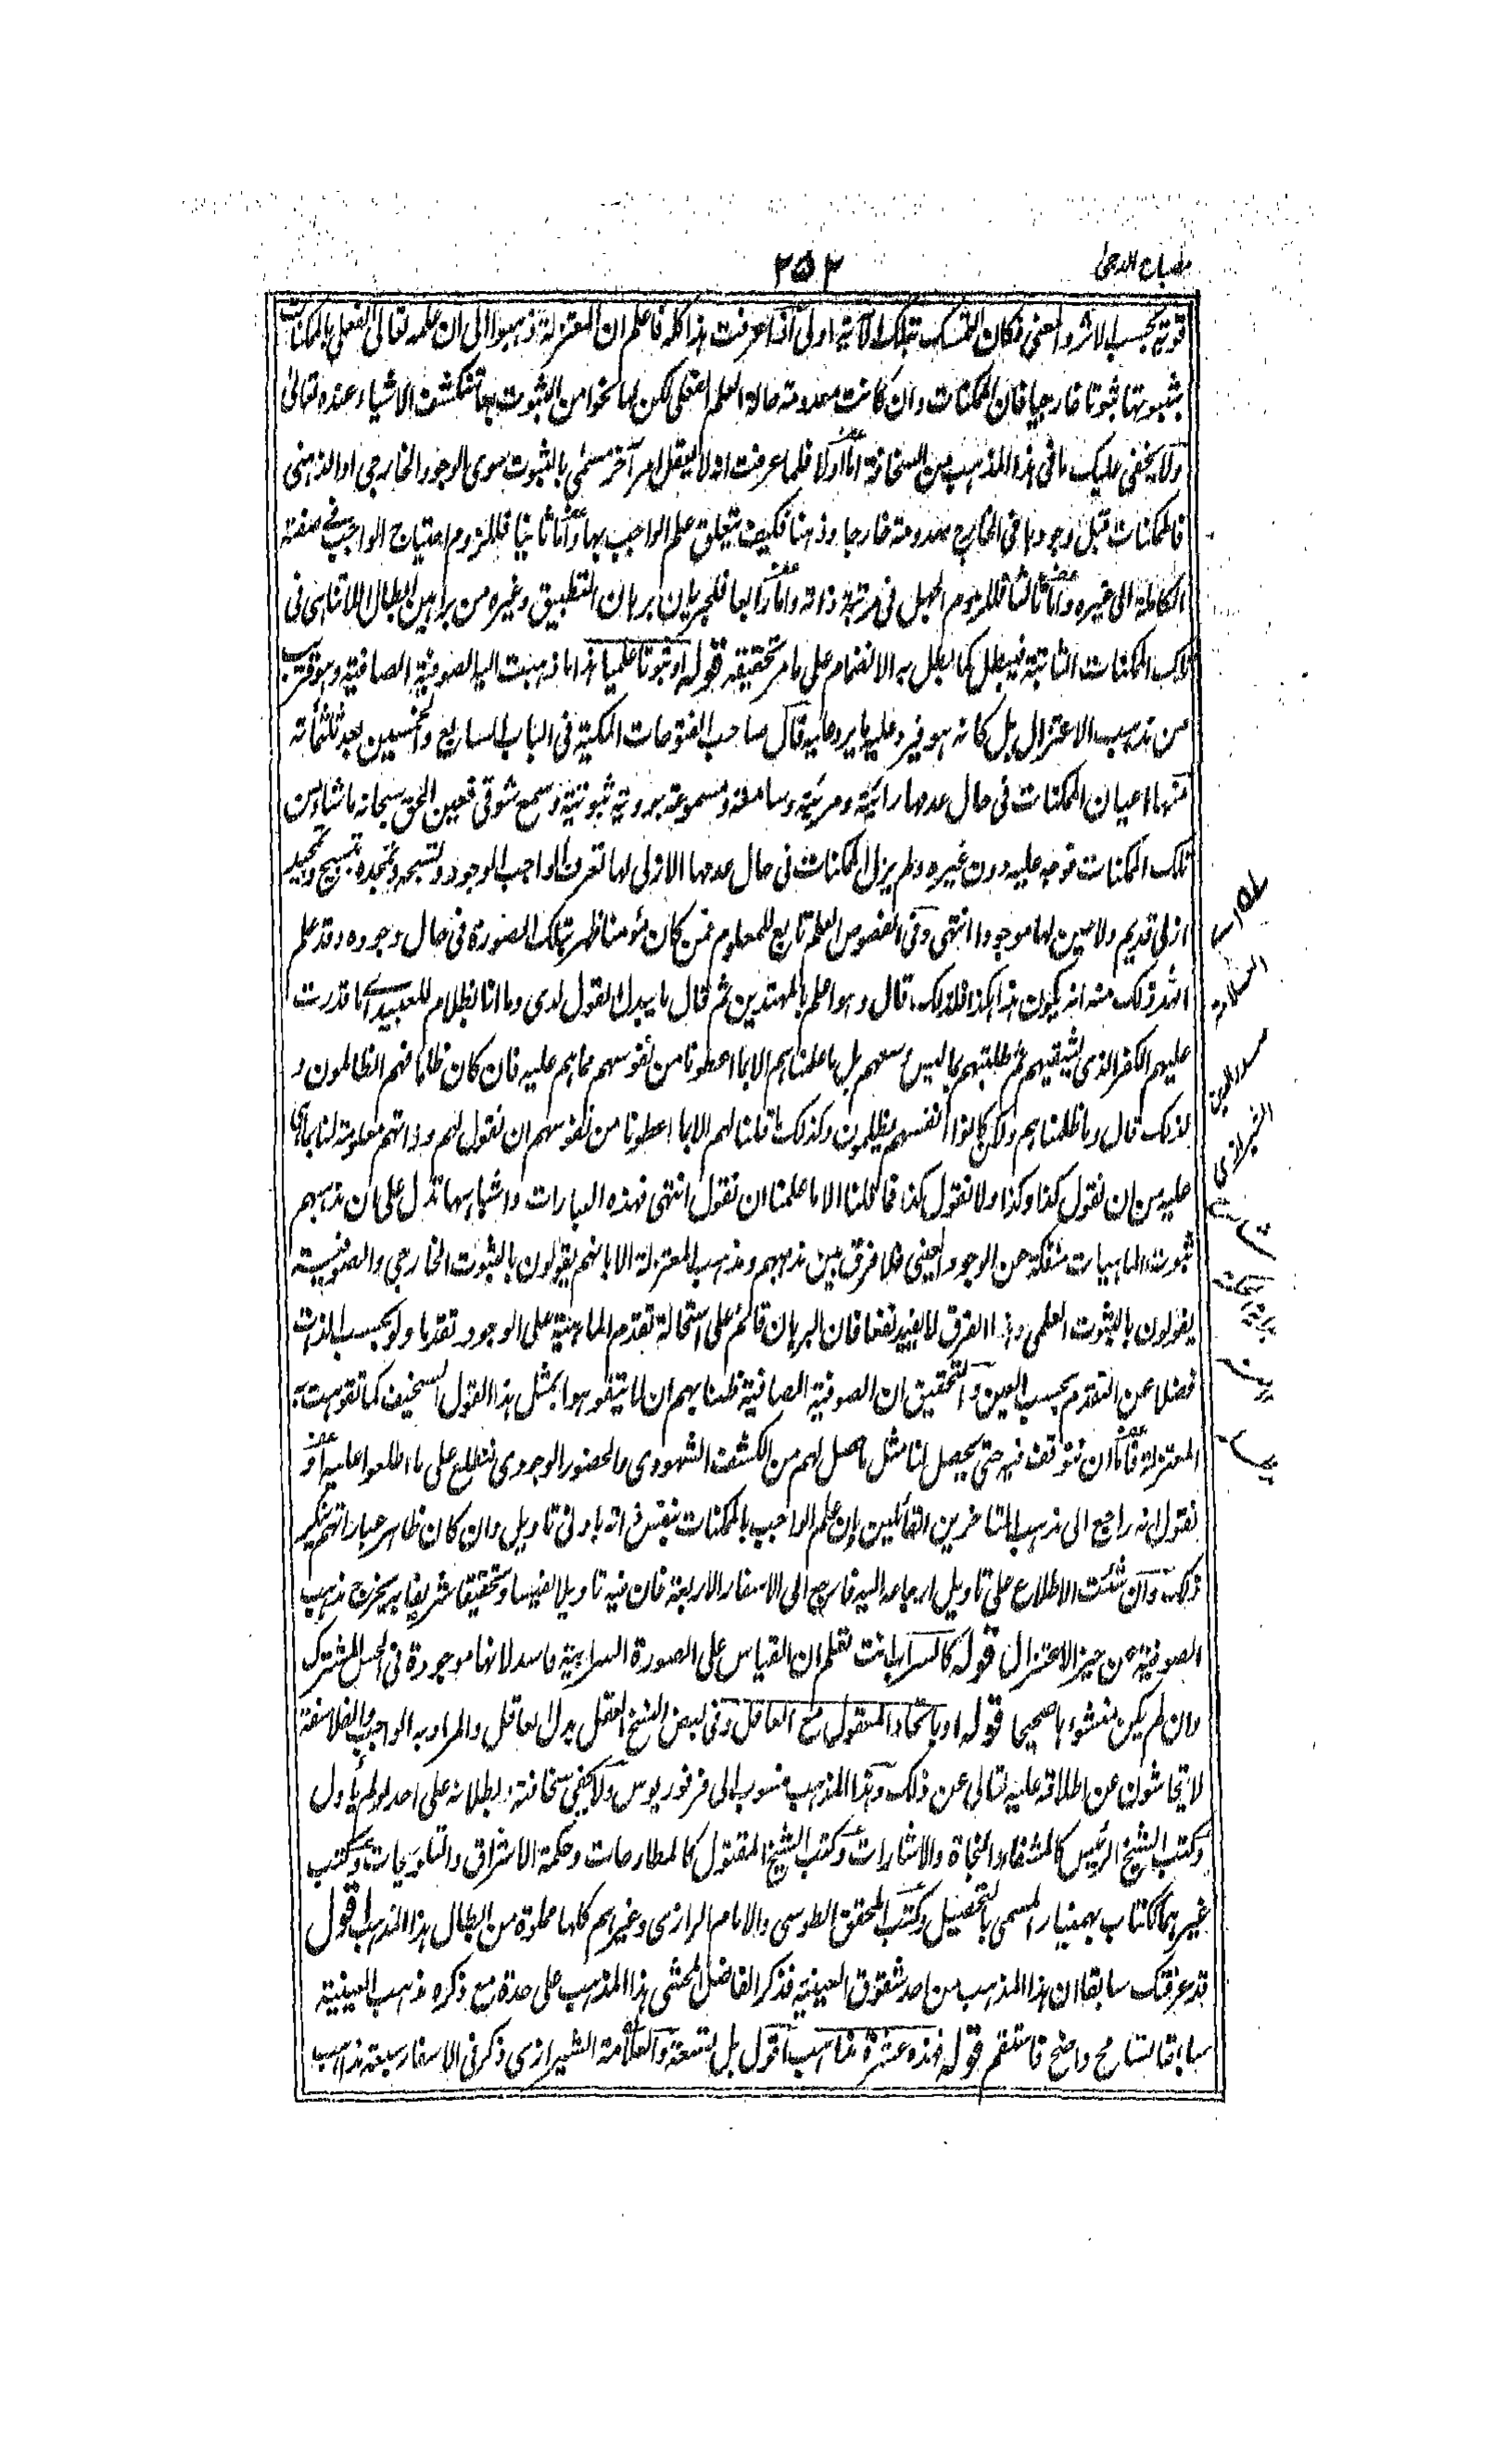 مصباح الدجى
٢٥٢
قوية بحسب الاثر والمعنى فكان التمسك بتلك الآية اولى اذا عرفت هذا كله فاعلم ان المعتزلة ذهبوا الى ان علمه تعالى الفعلى بالممكنات
بثبوتها ثبوتا خارجيا فان الممكنات وان كانت معدومة حالة العلم الفعلى لكن لها نحوا من الثبوت بها تنكشف الاشياء عنده تعالى
ولا يخفى عليك ما فى هذا المذهب من السخافة اما اولا فلما عرفت انه لا يعقل امر آخر مسمى بالثبوت سوى الوجود الخارجى او الذهنى
فالممكنات قبل وجودها فى الخارج معدومة خارجا وذهنا فكيف يتعلق علم الواجب بها واما ثانيا فللزوم احتياج الواجب فى صفته
الكاملة الى غيره واما ثالثا فللزوم الجهل فى مرتبة ذاته واما رابعا فلجريان برهان التطبيق وغيره من براهين ابطال اللاتناهى فى
تلك الممكنات الثابتة فيبطل كما يبطل به الانضمام على ما مر تحقيقه قوله او ثبوتا علميا هذا ما ذهبت اليه الصوفية الصافية وهو قريب
من مذهب الاعتزال بل كانه هو فيرد عليه ما يرد عليه قال صاحب الفتوحات المكية فى الباب السابع والخمسين بعد ثلثمائة
منها اعيان الممكنات فى حال عدمها رائية ومرئية وسامعة ومسموعة برؤية ثبوتية وسمع ثبوتى فعين الحق سبحانه ما شاء من
تلك الممكنات فوجه عليه دون غيره ولم يزل الممكنات فى حال عدمها الازلى لها تعرف الواجب الوجود وتسبحه وتمجده بتسبيح وتمجيد
ازلى قديم ولا عين لها موجودا انتهى وفى الفصوص العلم تابع للمعلوم فمن كان مؤمنا ظهر بتلك الصورة فى حال وجوده وقد علم
الله ذلك منه انه يكون هذا كذا فلذلك قال وهو اعلم بالمهتدين ثم قال ما يبدل القول لدى وما انا بظلام للعبيد اى ما قدرت
عليهم الكفر الذى يشقيهم ثم طلبتهم بما ليس فى وسعهم بل ما علمناهم الا بما اعطونا من نفوسهم مما هم عليه فان كان ظلما فهم الظالمون و
لذلك قال وما ظلمناهم ولكن كانوا انفسهم يظلمون وكذلك ما قلنا لهم الا بما اعطونا من نفوسهم ان نقول لهم وذاتهم معلومة لنا بما هى
عليه من ان نقول كذا وكذا ولا نقول كذا فما قلنا الا ما علمنا ان نقول انتهى فهذه العبارات واشباهها تدل على ان مذهبهم
ثبوت الماهيات منفكة عن الوجود العينى فلا فرق بين مذهبهم ومذهب المعتزلة الا بانهم يقولون بالثبوت الخارجى والصوفية
يقولون بالثبوت العلمى وهذا الفرق لا يفيد نفعا فان البرهان قائم على استحالة تقدم الماهية على الوجود تقدما ولو بحسب الذات
فضلا عن التقدم بحسب العين والتحقيق ان الصوفية الصافية ظننا بهم ان لا يتفوهوا بمثل هذا القول السخيف كما تفوهت به
المعتزلة فاما ان نتوقف فيه حتى يحصل لنا مثل ما حصل لهم من الكشف الشهودى والحضور الوجودى فنطلع على ما اطلعوا عليه او
نقول انه راجع الى مذهب المتاخرين القائلين بان علم الواجب بالممكنات بنفس ذاته بادنى تاويل وان كان ظاهر عباراتهم ينكر
ذلك وان شئت الاطلاع على تاويل ارجاعه اليه فارجع الى الاسفار الاربعة فان فيه تاويلا نفيسا وتحقيقا شريفا به يخرج مذهب
الصوفية عن حيز الاعتزال قوله كالسراب انت تعلم ان القياس على الصورة السرابية فاسد لانها موجودة فى الحس المشترك
وان لم يكن منشؤها صحيحا قوله او باتحاد المعقول مع العاقل وفى بعض النسخ العقل بدل العاقل والمراد به الواجب والفلاسفة
لا يتحاشون عن اطلاقه عليه تعالى عن ذلك وهذا المذهب منسوب الى فرفوريوس ولا يخفى سخافته وبطلانه على احد لو لم ياول
وكتب الشيخ الرئيس كالشفاء والنجاة والاشارات وكتب الشيخ المقتول كالمطارحات وحكمة الاشراق والتلويحات وكتب
غيرهما ككتاب بهمنيار المسمى بالتحصيل وكتب المحقق الطوسى والامام الرازى وغيرهم كلها مملوة من ابطال هذا المذهب اقول
قد عرفتك سابقا ان هذا المذهب من احد شقوق العينية فذكر الفاضل المحشى هذا المذهب على حدة مع ذكره مذهب العينية
سابقا تسامح واضح فاستقم قوله فهذه عشرة مذاهب اقول بل تسعة والعلامة الشيرازى ذكر فى الاسفار سبعة مذاهب